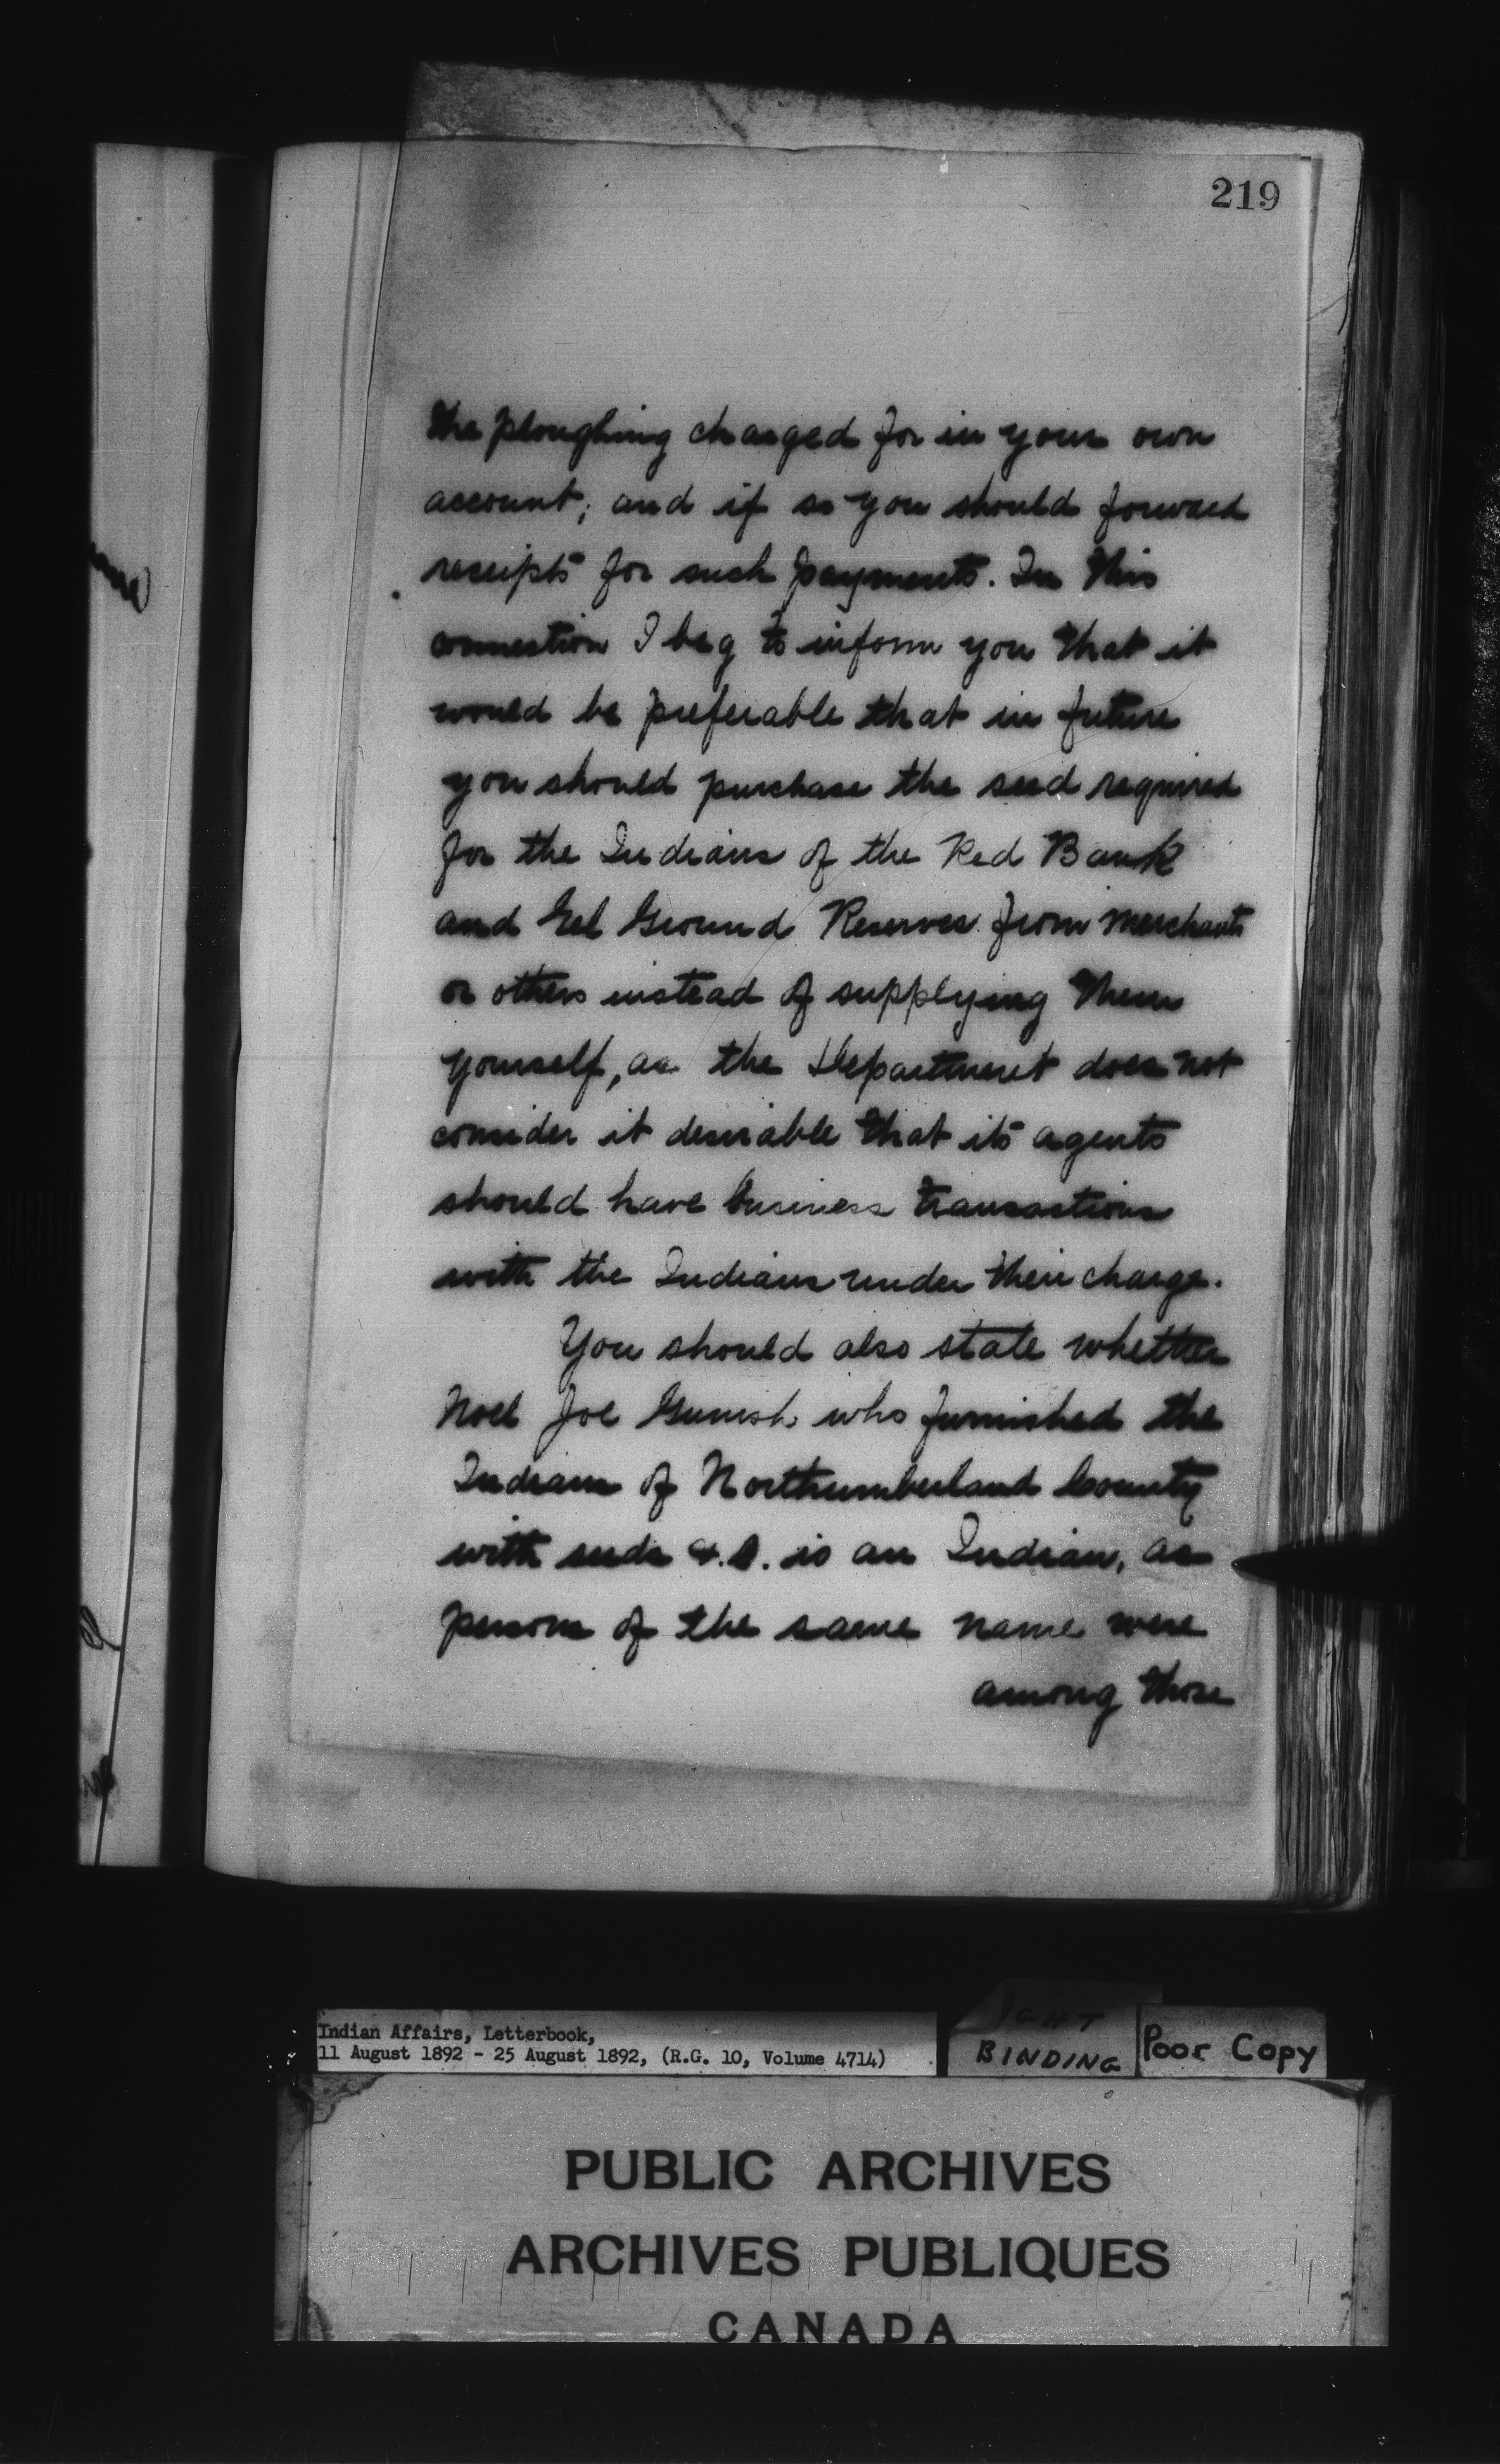 219
the ploughing charged for in your own
account; and if so you should forward
receipts for such payments. In this
connection I beg to inform you that it
would be preferable that in future
you should purchase the seed required
for the Indians of the Red Bank
and Eel Ground Reserves from merchants
or others instead of supplying them
yourself, as the Department does not
consider it desirable that its agents
should have business transactions
with the Indians under their charge.
You should also state whether
Noel Joe who furnished the
Indians of Northumberland County
with seeds is an Indian, as
persons of the same name were
among those
Indian Affairs, Letterbook,
11 August 1892 - 25 August 1892, (R.G. 10, Volume 4714)
BINDING
Poor Copy
PUBLIC ARCHIVES
ARCHIVES PUBLIQUES
CANADA